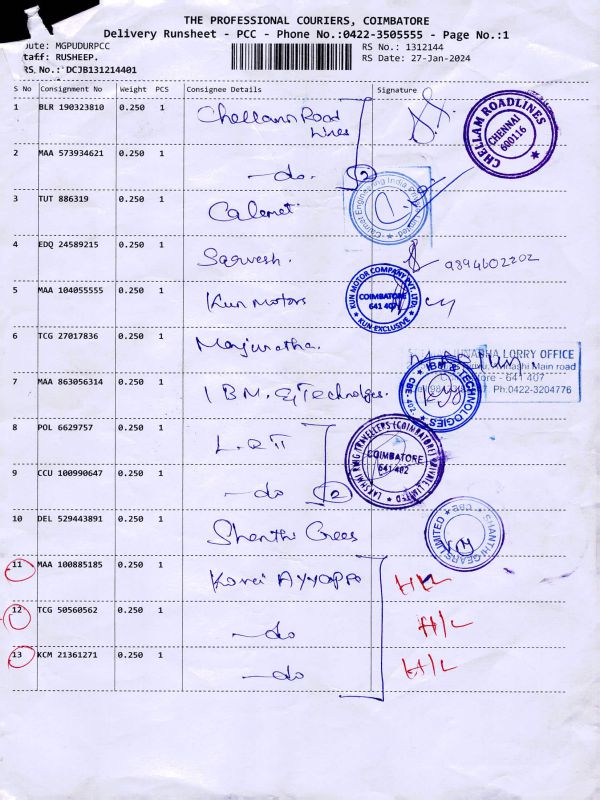 THE PROFESSIONAL COURIERS, COIMBATORE
Delivery Runsheet - PCC - Phone No.:0422-3505555 - Page No.:1
oute: MGPUDURPCC
RS No.: 1312144
taff: RUSHEEP.
RS Date: 27-Jan-2024
RS No.:DCJB131214401
S No Consignment No Weight PCS Consignee Details Signature
1 BLR 190323810 0.250 1 Chellam Road Lines
CHELLAM ROADLINES CHENNAI 600116
2 MAA 573934621 0.250 1 -do. 2
3 TUT 886319 0.250 1 Calmet
4 EDQ 24589215 0.250 1 Sarvesh. 9894602202
5 MAA 104055555 0.250 1 Kun Motors
KUN MOTOR COMPANY PVT. LTD. COIMBATORE 641 407 KUN EXCLUSIVE
6 TCG 27017836 0.250 1 Manjunatha.
LORRY OFFICE
Main road
641 407
Ph:0422-3204776
7 MAA 863056314 0.250 1 IBM & Technologes.
IBM & TECHNOLOGIES CBE-402
8 POL 6629757 0.250 1
LAKSHMI RING TRAVELLERS (COIMBATORE) PRIVATE LIMITED COIMBATORE 641 402
9 CCU 100990647 0.250 1 -do 2
10 DEL 529443891 0.250 1 Shanthi Gees
SHANTHI GEARS LIMITED CBE
11 MAA 100885185 0.250 1 Kovei Ayyappa H/L
12 TCG 50560562 0.250 1 -do H/L
13 KCM 21361271 0.250 1 -do H/L